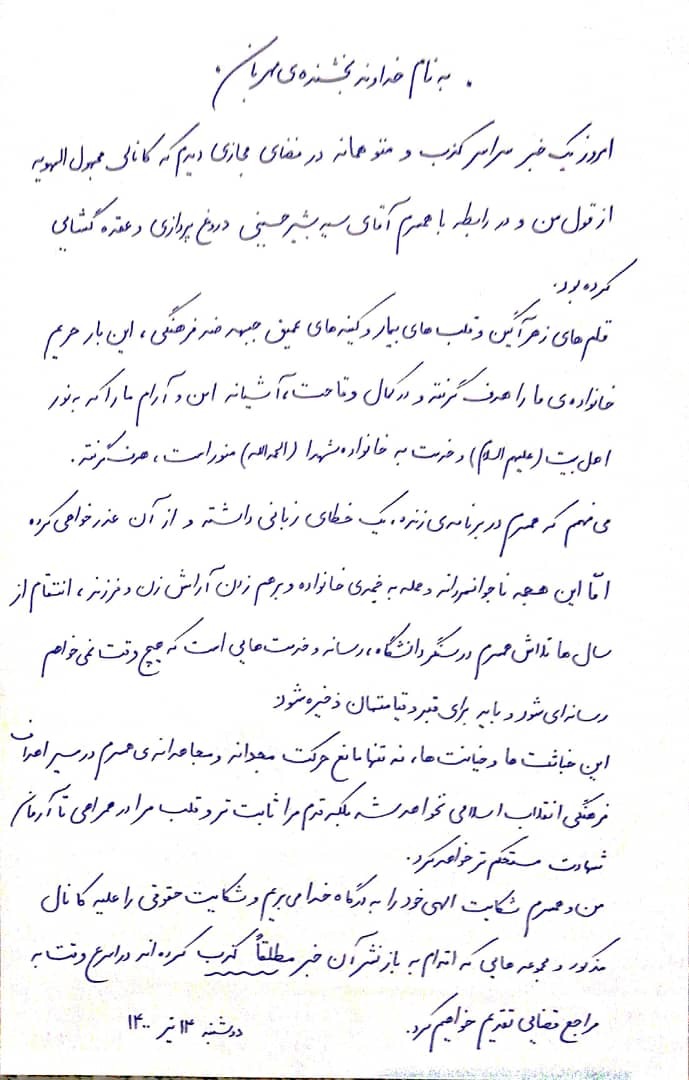 . به نام خداوند بخشنده‌ی مهربان .
امروز یک خبر سراسر کذب و متوهمانه در فضای مجازی دیدم که کانالی مجهول الهویه
از قول من و در رابطه با همسرم آقای سید بشیر حسینی دروغ پردازی و عقده گشایی
کرده بود.
قلم‌های زهرآگین و قلب های بیمار و کینه‌های عمیق جبهه ضد فرهنگی، این بار حریم
خانواده‌ی ما را هدف گرفته و در کمال وقاحت، آشیانه امن و آرام ما را که به نور
اهل بیت (علیهم السلام) و خدمت به خانواده شهدا (الحمدالله) منور است، هدف گرفته.
می‌فهمم که همسرم در برنامه‌ی زنده، یک خطای زبانی داشته و از آن عذرخواهی کرده
امّا این هجمه ناجوانمردانه و حمله به خیمه‌ی خانواده و برهم زدن آرامش زن و فرزند، انتقام از
سال ها تلاش همسرم در سنگر دانشگاه، رسانه و خدمت هایی است که هیچ وقت نمی‌خواهم
رسانه‌ای شود و باید برای قبر و قیامتمان ذخیره شود.
این خباثت ها و خیانت ها، نه تنها مانع حرکت مجدانه و مجاهدانه‌ی همسرم در مسیر اهداف
فرهنگی انقلاب اسلامی نخواهد شد بلکه قدم مرا ثابت تر و قلب مرا در همراهی تا آرمان
شهادت مستحکم تر خواهد کرد.
من و همسرم شکایت الهی خود را به درگاه خدا می‌بریم و شکایت حقوقی را علیه کانال
مذکور و مجموعه هایی که اقدام به باز نشر آن خبر مطلقاً کذب کرده اند در اسرع وقت به
مراجع قضایی تقدیم خواهیم کرد.
دوشنبه ۱۴ تیر ۱۴۰۰